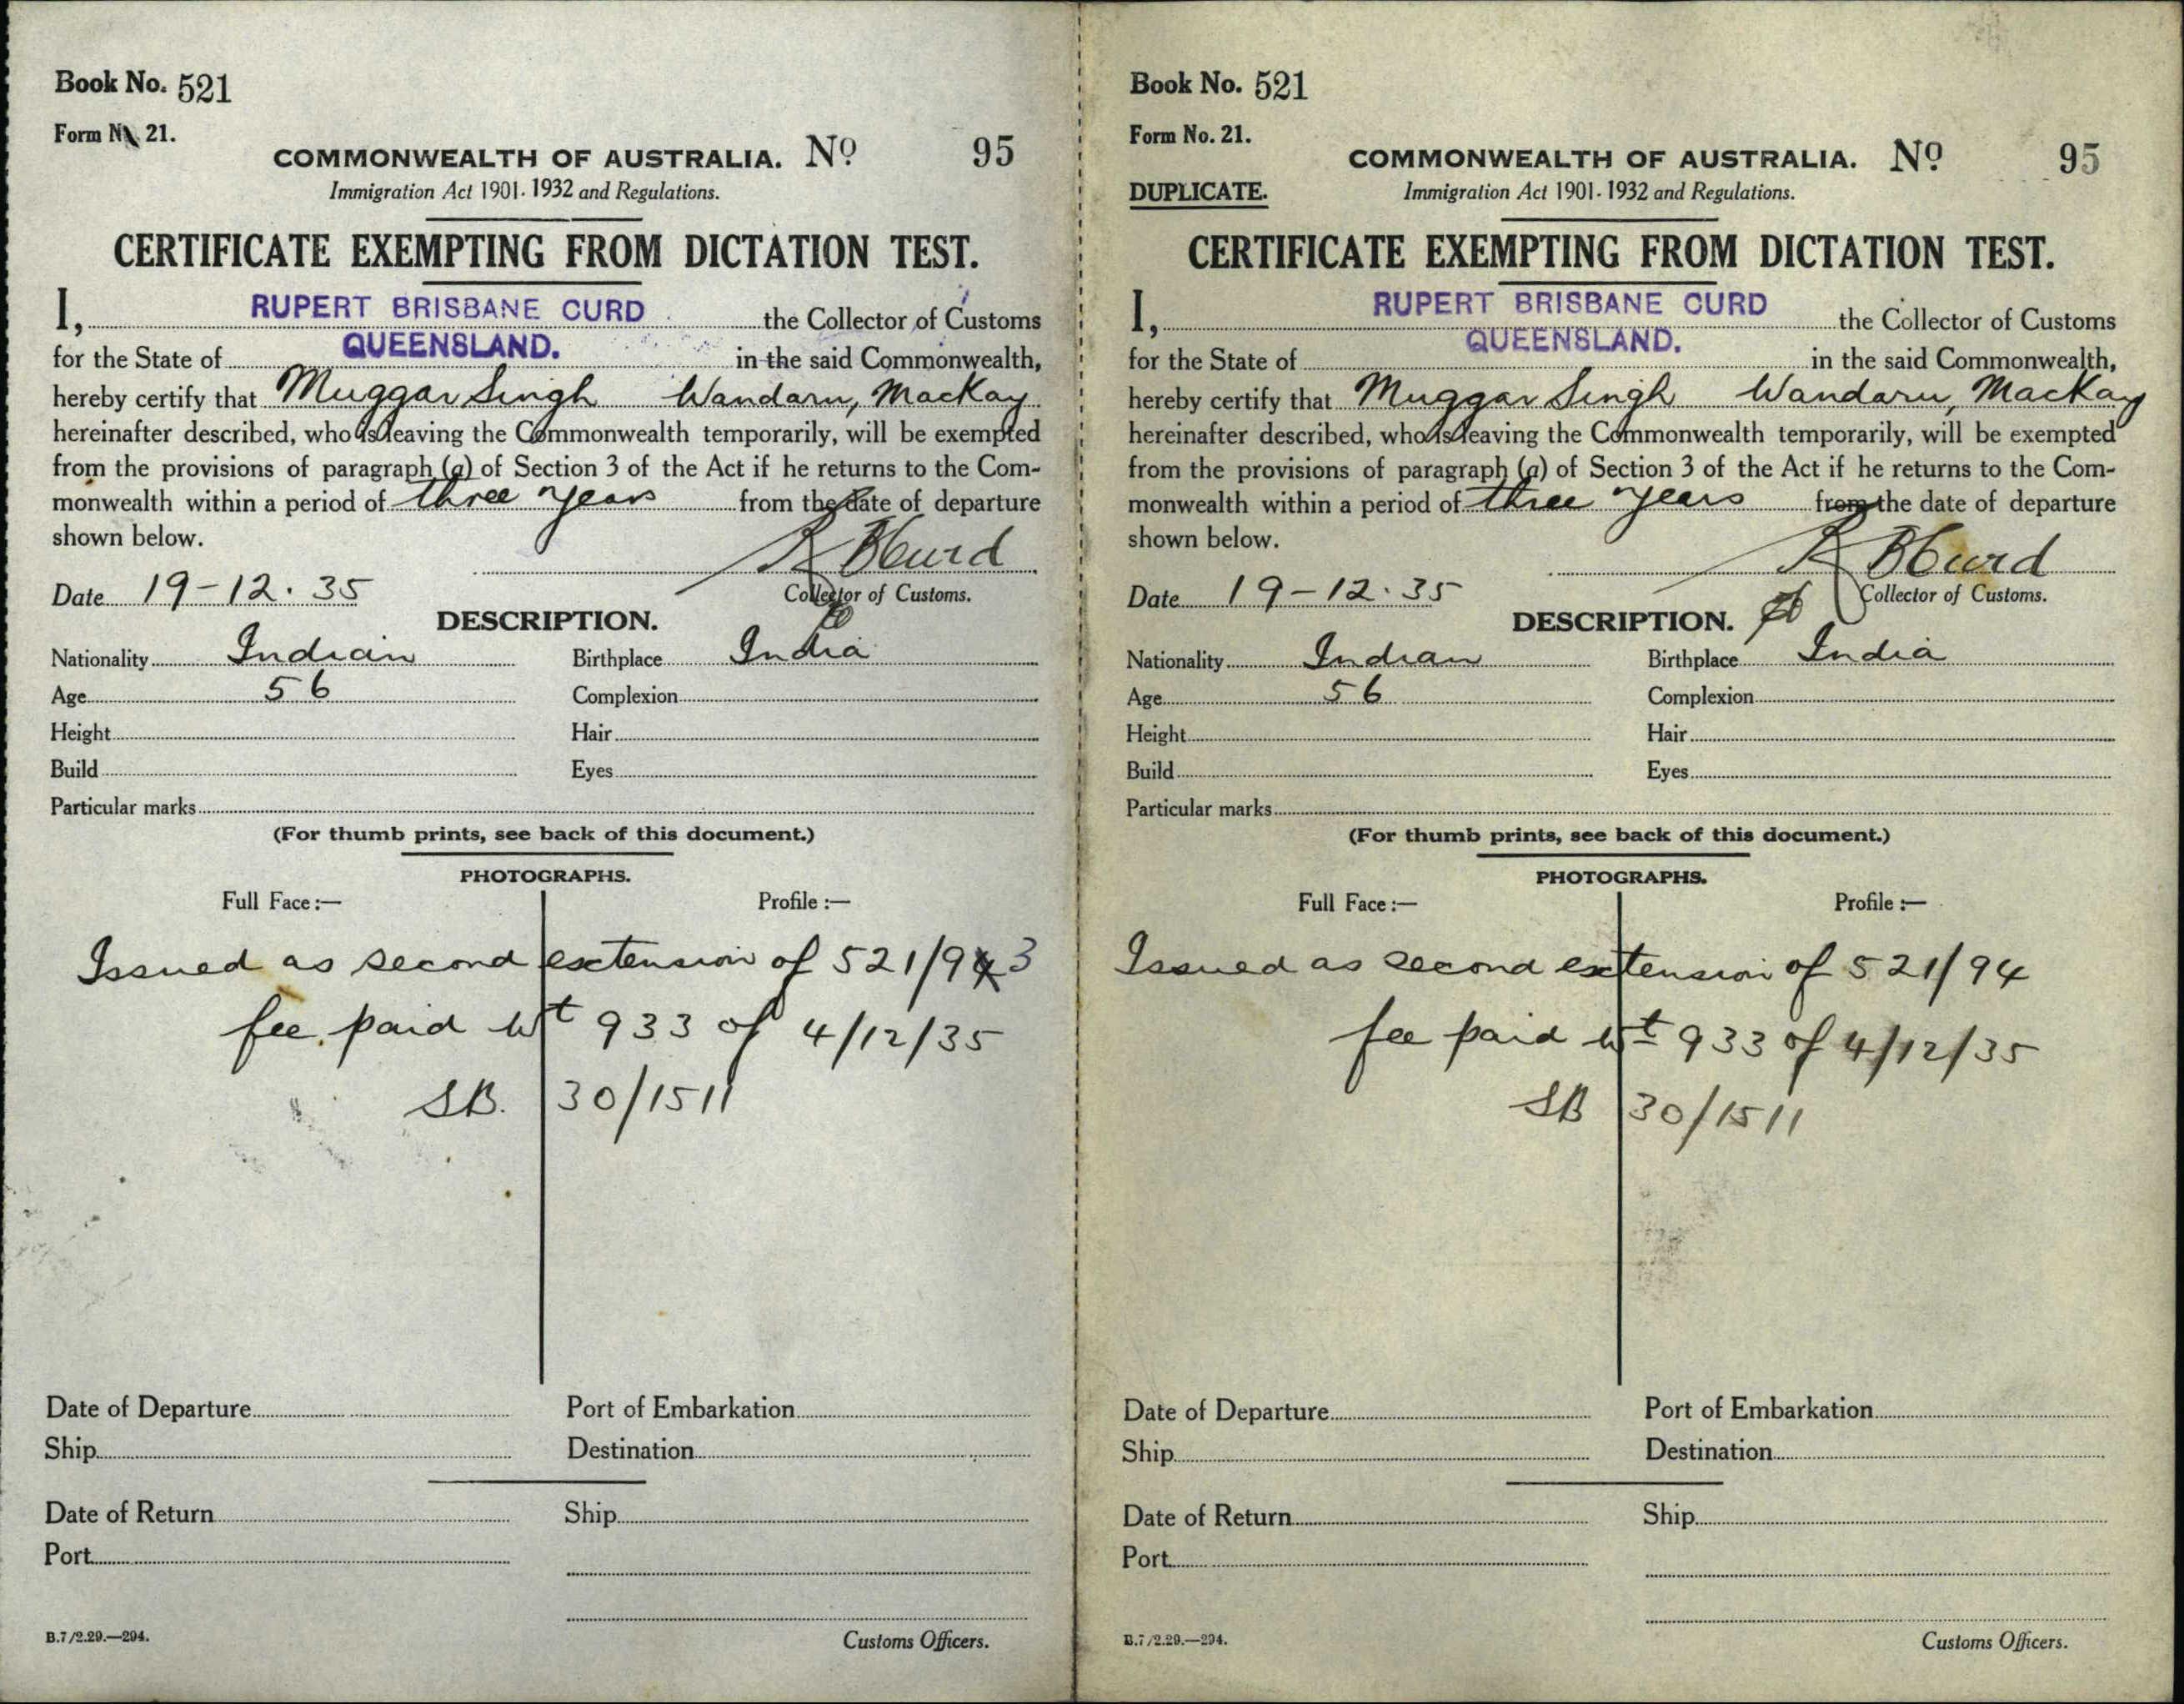 Book No. 521
Form No. 21.
COMMONWEALTH OF AUSTRALIA. No 95
Immigration Act 1901-1932 and Regulations.
CERTIFICATE EXEMPTING FROM DICTATION TEST.
I, RUPERT BRISBANE CURD the Collector of Customs
for the State of QUEENSLAND. in the said Commonwealth,
hereby certify that Muggar Singh Wandaru, Mackay
hereinafter described, who is leaving the Commonwealth temporarily, will be exempted
from the provisions of paragraph (a) of Section 3 of the Act if he returns to the Com-
monwealth within a period of three years from the date of departure
shown below.
R B Curd
Date 19-12.35 Collector of Customs.
DESCRIPTION.
Nationality Indian Birthplace India
Age 56 Complexion
Height Hair
Build Eyes
Particular marks
(For thumb prints, see back of this document.)
PHOTOGRAPHS.
Full Face:— Profile:—
Issued as second extension of 521/93
fee paid Wt 933 of 4/12/35
SB. 30/1511
Date of Departure Port of Embarkation
Ship Destination
Date of Return Ship
Port
B.7/2.29.—294. Customs Officers.
Book No. 521
Form No. 21.
COMMONWEALTH OF AUSTRALIA. No 95
DUPLICATE. Immigration Act 1901-1932 and Regulations.
CERTIFICATE EXEMPTING FROM DICTATION TEST.
I, RUPERT BRISBANE CURD the Collector of Customs
for the State of QUEENSLAND. in the said Commonwealth,
hereby certify that Muggar Singh Wandaru, Mackay
hereinafter described, who is leaving the Commonwealth temporarily, will be exempted
from the provisions of paragraph (a) of Section 3 of the Act if he returns to the Com-
monwealth within a period of three years from the date of departure
shown below.
R B Curd
Date 19-12.35 Collector of Customs.
DESCRIPTION.
Nationality Indian Birthplace India
Age 56 Complexion
Height Hair
Build Eyes
Particular marks
(For thumb prints, see back of this document.)
PHOTOGRAPHS.
Full Face:— Profile:—
Issued as second extension of 521/94
fee paid Wt 933 of 4/12/35
SB 30/1511
Date of Departure Port of Embarkation
Ship Destination
Date of Return Ship
Port
B.7/2.29.—294. Customs Officers.